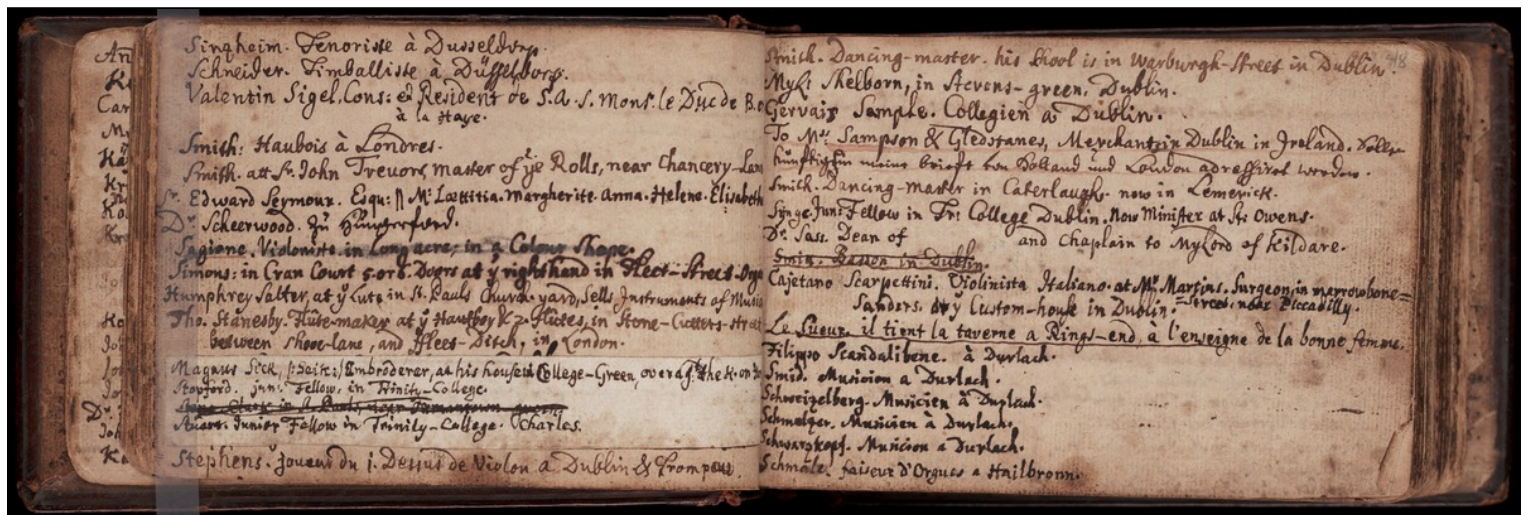 Singheim. Tenoriste à Dusseldorp.
Schneider. Timballiste à Düsseldorp.
Valentin Sigel. Cons: et Resident de S.A.S. Mons. le Duc de
à la Haye.
Smith: Haubois à Londres.
Smith. att Sr. John Trevors, master of ye Rolls, near Chancery-Lan
Sr. Edward Seymour. Esqu: Lættitia. Margheritt. Anna. Helene. Elisabeth
Dr. Scheerwood. zu Hungerford.
Sagione. Violoniste. in Long acre; in a Colour Shope.
Simons: in Cran Court 5. or 6. Doors at ye right hand in Fleet-Street.
Humphrey Salter, at ye Lute in St. Pauls Church-yard, Sells Instruments of Music
Tho. Stanesby. Flûte-maker at ye Hautboy & 2. Flûtes, in Stone-Cutters-street
between Shooe-lane, and Fleet-Ditch, in London.
Magnus Sick, Embroderer, at his house in College-Green, over
Stopford. jun: Fellow, in Trinity-College.
Junior Fellow in Trinity-College. Charles.
Stephens. Joueur du 1. Dessus de Violon a Dublin & Trompett
Smith. Dancing-master. his School is in Warburgh-Street in Dublin. 48
Myl: Shelborn, in Stevens-green. Dublin.
Gervais Sample. Collegien à Dublin.
To Mrs. Sampson & Gledstanes, Merchants in Dublin in Jreland. Sollen
künfftighin meine briefe von Holland und London adressirt werden.
Smith. Dancing-master in Caterlaugh. now in Lemerick.
Synge. Jun: Fellow in Tr: College Dublin. Now Minister at St: Owens.
Dr. Sass. Dean of and Chaplain to MyLord of Kildare.
Smith. Basson in Dublin.
Cajetano Scarpettini. Violinista Italiano. at Mr. Martins. Surgeon, in marrowbone=
Sanders. by ye Custom-house in Dublin. =street. near Piccadilly.
Le Sueur. il tient la taverne a Rings-end, à l'enseigne de la bonne femme.
Filippo Scandalibene. à Durlach.
Smid. Musicien a Durlach.
Schweizelberg. Musicien à Durlach.
Schmelzer. Musicien à Durlach.
Schwarzkopf. Musicien a Durlach.
Schmale. faiseur d'Orgues a Hailbronn.